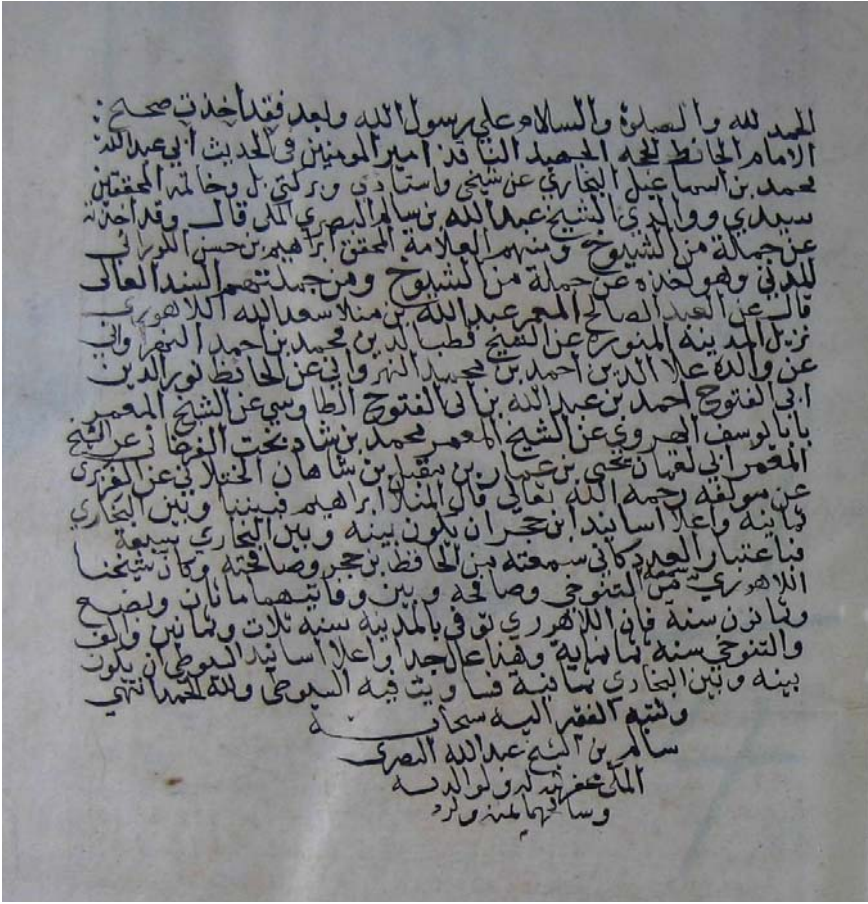 الحمد لله والصلوة والسلام علي رسول الله وبعد فقد اخذت صحيح:
الامام الحافظ الحجه الجهبد الناقد امير المومنين في الحديث ابي عبدالله:
محمد بن اسماعيل البخاري عن شيخي واستادي وبركتي بل وخاتمة المحققين
سيدي ووالدي الشيخ عبدالله بن سالم البصري المكي قال وقد اخذته
عن جملة من الشيوخ ومنهم العلامة المحقق ابراهيم بن حسن الكوراني
المدني وهو اخذه عن جملة من الشيوخ ومن جملتهم السند العالى
قال عن العبد الصالح المعمر عبدالله بن منلا سعد الله اللاهوري
نزيل المدينه المنوره عن الشيخ قطب الدين محمد بن احمد النهرواني
عن والده علا الدين احمد بن محمد النهرواني عن الحافظ نور الدين
ابى الفتوح احمد بن عبدالله بن ابى الفتوح الطاوسي عن الشيخ المعمر
بابا يوسف الهروي عن الشيخ المعمر محمد بن شاد بخت الفرغاني عن الشيخ
المعمر ابي لقمان يحيى بن عمار بن مقبل بن شاهان الختلاني عن الفربرى
عن مولفه رحمه الله تعالى قال المنلا ابراهيم فبيننا وبين البخاري
ثمانيه واعلا اسانيد ابن حجر ان يكون بينه وبين البخاري سبعة
فباعتبار العدد كاني سمعته من الحافظ بن حجر وصافحته وكان شيخنا
اللاهوري سمعه من التنوخي وصافحه وبين وفاتيهما مائتان وبضع
وثمانون سنة فان اللاهوري توفي بالمدينه سنه ثلاث وثمانين والف
والتنوخي سنه ثمانماية وهذا عال جدا واعلا اسانيد السيوطي ان يكون
بينه وبين البخاري ثمانية فساويت فيه السيوطي ولله الحمد انتهي
وكتبه الفقير اليه سبحانه
سالم بن الشيخ عبدالله البصرى
المكي غفر الله له ولوالديه